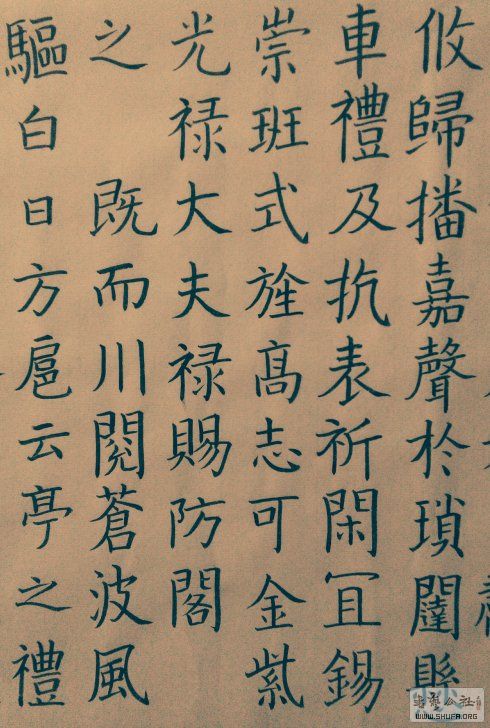 攸歸播嘉聲於瑣闥縣
車禮及抗表祈閑冝錫
崇班式旌髙志可金紫
光禄大夫禄賜防閣
之 既而川閱蒼波風
驅白日方扈云亭之禮
公社
WWW.SHUFA.ORG